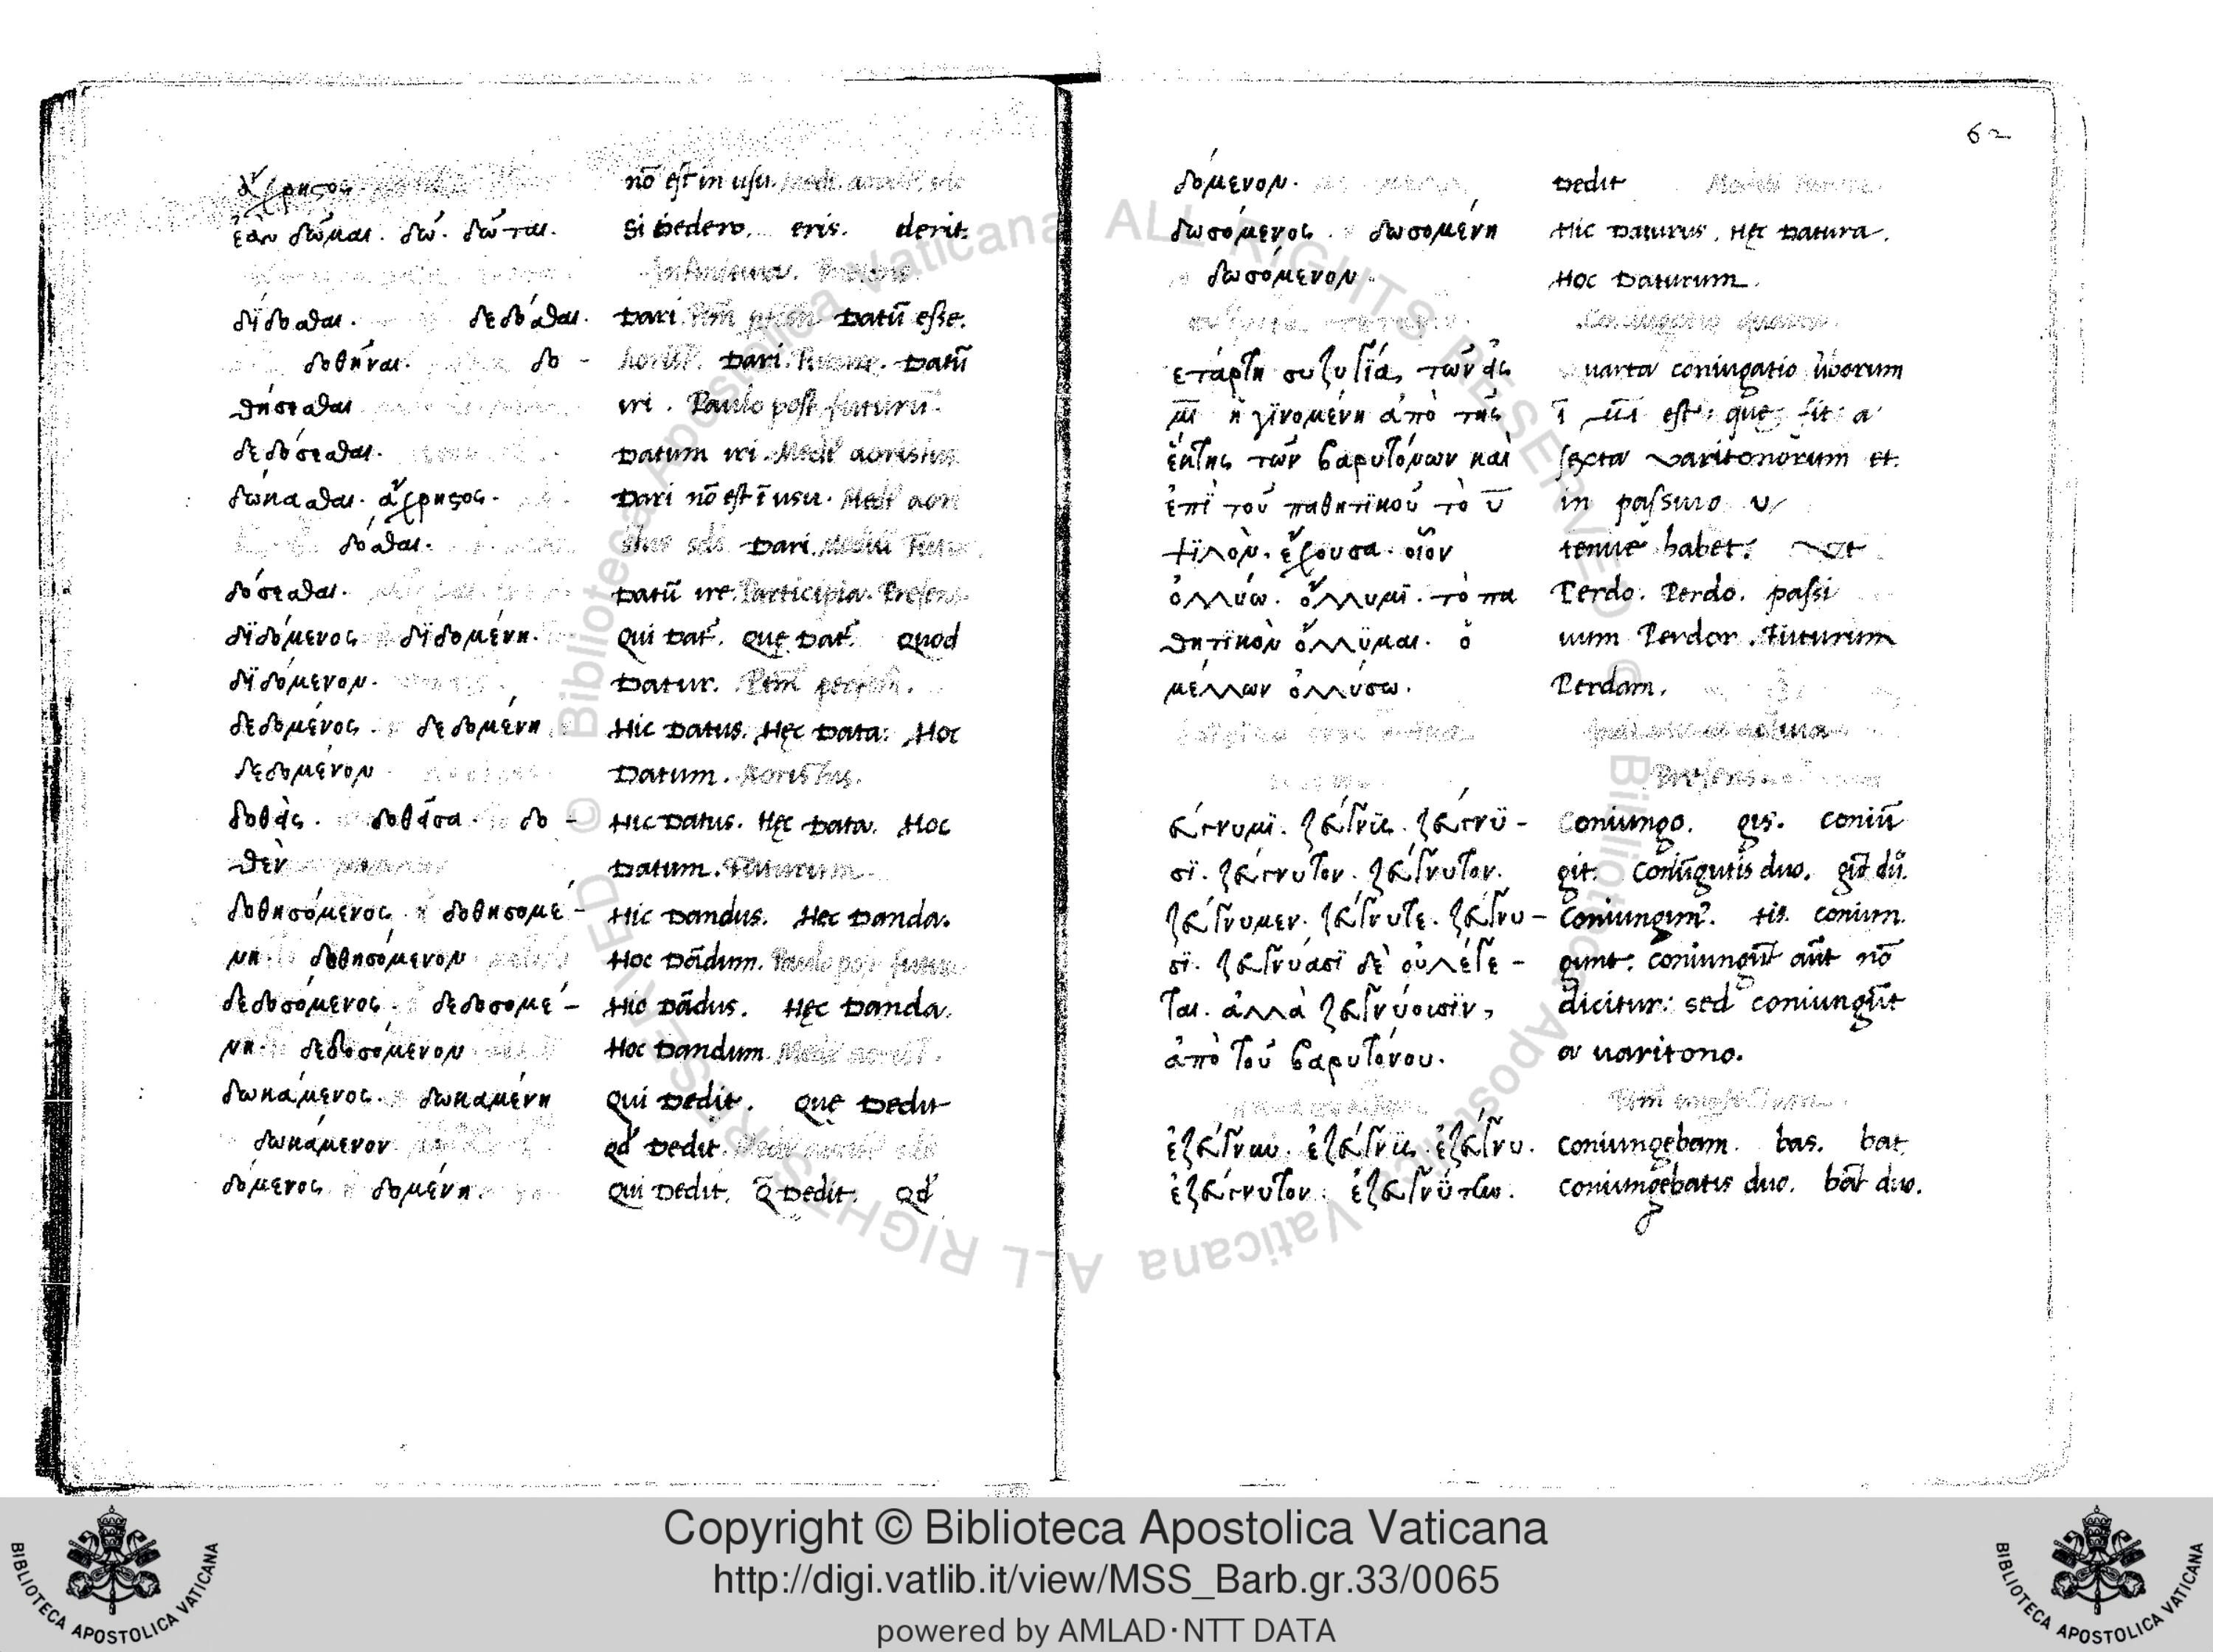 ἄχρηστος
ἐὰν δῶμαι. δῷ. δῶται.
δίδοσθαι. δεδόσθαι.
δοθῆναι. δο-
θήσεσθαι
δεδόσεσθαι.
δώκασθαι. ἄχρηστος.
δόσθαι.
δόσεσθαι.
δϊδόμενος διδομένη.
δϊδόμενον.
δεδομένος. δεδομένη
δεδομένον
δοθὰς. δοθάσα. δο-
θὲν
δοθησόμενος. δοθησομέ-
νη. δοθησόμενον
δεδοσόμενος. δεδοσομέ-
νη. δεδοσόμενον
δωκάμενος. δωκαμένη
δωκάμενον
δόμενος δομένη
nō est in usu.
Si dedero. eris. derit.
Infinitiua.
Dari. datū esse.
Aorist. Dari. Datū
iri. Paulo post futurū.
Datum iri. Medii aoristus
Dari nō est ī usu. Medii aori
Dari. Medii
Datū ire. Participia. Presens.
Qui dat᷑. que dat᷑. Quod
Datur.
Hic Datus. Hęc Data. Hoc
Datum. Aoristus.
Hic Datus. Hęc Data. Hoc
Datum. Futurum.
Hic Dandus. Hec Danda.
Hoc Dādum. Paulo post futuru
Hic Dādus. Hęc Danda.
Hoc Dandum.
Qui Dedit. Quę Dedit
qd Dedit.
Qui Dedit. Q̄ Dedit. Qd
62
δόμενον.
δωσόμενος. δωσομένη
δωσόμενον.
ετάρτη συζυγία, τῶν εἰς
μι ἡ γϊνομένη ἀπὸ τῆς
ἕκτης τῶν βαρυτόνων καὶ
ἐπὶ τοῦ παθητϊκοῦ τὸ ῡ
ψϊλὸν. ἔχουσα. οἷον
ὀλλύω. ὄλλυμϊ. τὸ πα
θητϊκὸν ὄλλϋμαι. ὁ
μέλλων ὀλλύσω.
εύγνυμϊ. ζεύγνϋς. ζεύγνϋ-
σϊ. ζεύγνυτον. ζεύγνυτον.
ζεύγνυμεν. ζεύγνυτε. ζεύγνυ-
σϊ. ζευγνύασϊ δὲ οὐ λέγε-
ται. ἀλλὰ ζευγνύουσϊν,
ἀπὸ τοῦ βαρυτόνου.
ἐζεύγνυν. ἐζεύγνϋς. ἐζεύγνυ.
ἐζεύγνυτον. ἐζευγνϋτην.
Dedit
Hic Daturus. Hęc Datura.
Hoc Daturum.
uarta coniugatio ūborum
ī μι est. que fit a
sexta varitonorum et.
in passiuo υ
tenue habet.
Perdo. Perdo. passi
uum Perdor. Futurum
Perdam.
Presens.
Coniungo. gis. coniū
git. Coniūgitis duo. git dū.
Coniungim᷒. tis. coniun
gunt. coniungūt aūt nō
dicitur: sed coniungūt
a uaritono.
coniungebam. bas. bat
coniungebatis duo. bāt duo.
Copyright © Biblioteca Apostolica Vaticana
http://digi.vatlib.it/view/MSS_Barb.gr.33/0065
powered by AMLAD·NTT DATA
BIBLIOTECA APOSTOLICA VATICANA
BIBLIOTECA APOSTOLICA VATICANA